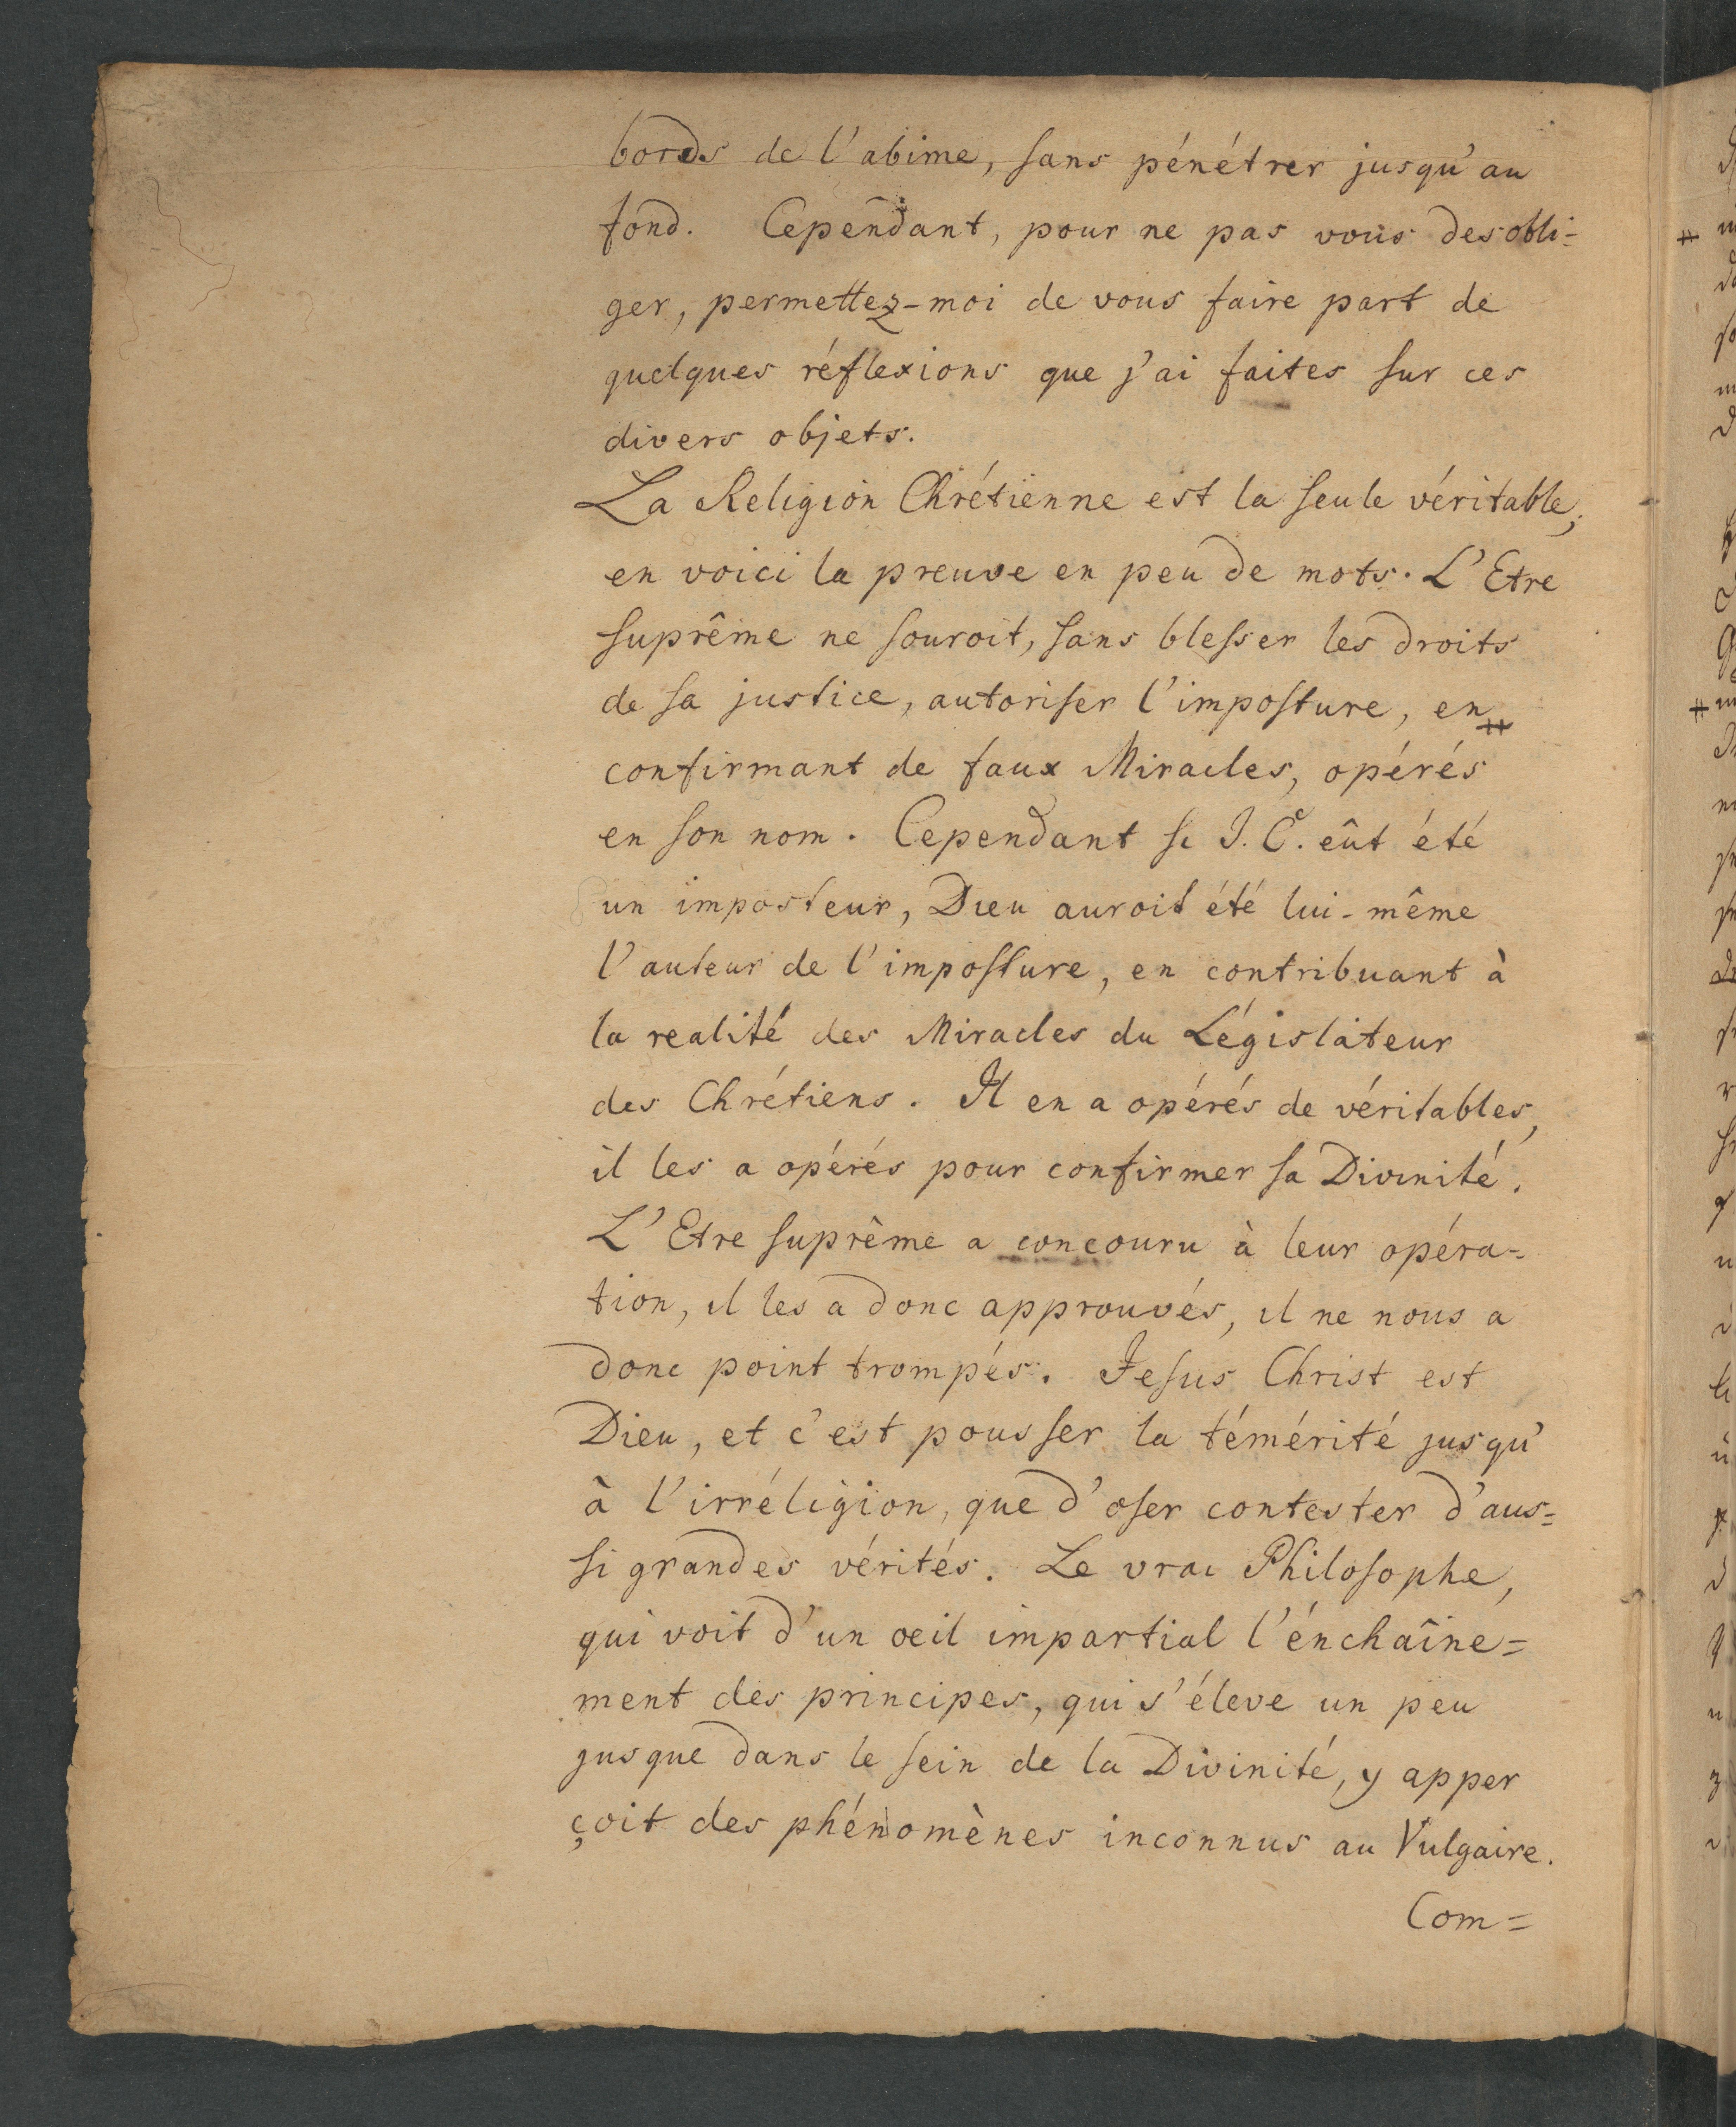 bords de l'abime, sans pénétrer jusqu'au
fond. Cependant, pour ne pas vous desobli=
ger, permettez-moi de vous faire part de
quelques réflexions que j'ai faites sur ces
divers objets.
La Religion Chrétienne est la seule véritable;
en voici la preuve en peu de mots. L'Etre
suprême ne souroit, sans blesser les droits
de sa justice, autoriser l'imposture, en
confirmant de faux Miracles, opérés
en son nom. Cependant si J. C. eût été
un imposteur, Dieu auroit été lui-même
l'auteur de l'imposture, en contribuant à
la realité des Miracles du Législateur
des Chrétiens. Il en a opérés de véritables,
il les a opérés pour confirmer sa Divinité.
L'Etre suprême a concouru à leur opéra=
tion, il les a donc approuvés, il ne nous a
donc point trompés. Jesus Christ est
Dieu, et c'est pousser la témérité jusqu'
à l'irréligion, que d'oser contester d'aus=
si grandes vérités. Le vrai Philosophe,
qui voit d'un oeil impartial l'énchaîne=
ment des principes, qui s'éleve un peu
jusque dans le sein de la Divinité, y apper
çoit des phénomènes inconnus au Vulgaire.
Com=